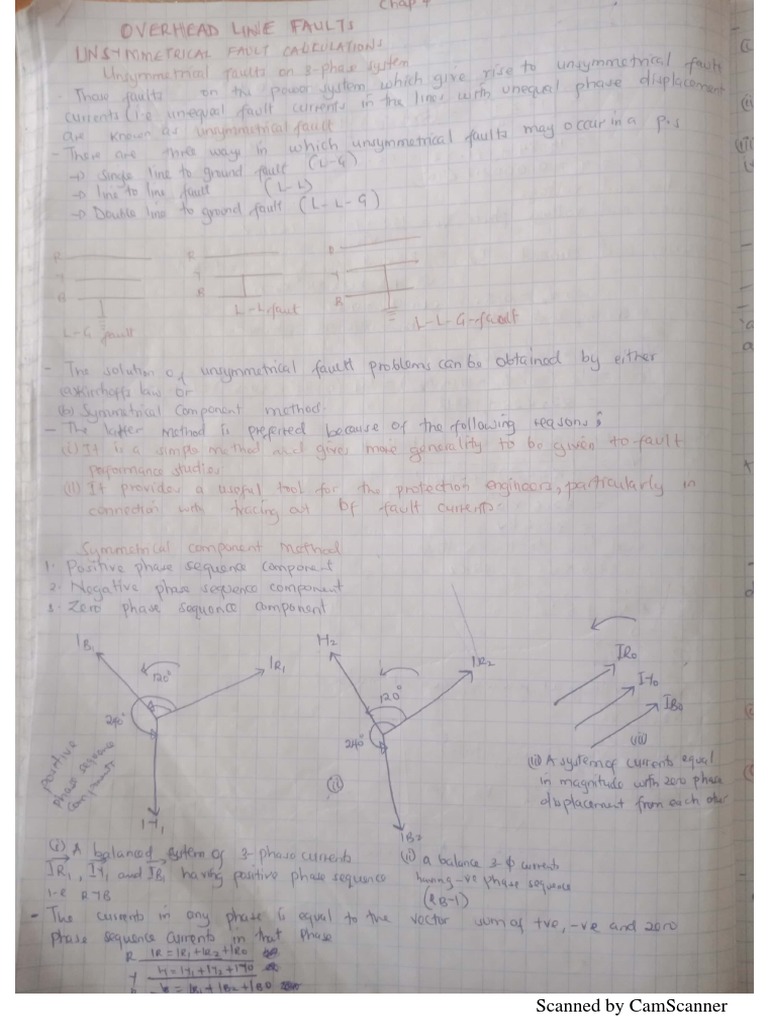 Chap 4
OVERHEAD LINE FAULTS
UNSYMMETRICAL FAULT CALCULATIONS
Unsymmetrical faults on 3-phase system
- Those faults on the power system which give rise to unsymmetrical fault
currents (i.e unequal fault currents in the lines with unequal phase displacement
are known as unsymmetrical fault
- There are three ways in which unsymmetrical faults may occur in a p.s
→ Single line to ground fault (L-G)
→ line to line fault (L-L)
→ Double line to ground fault (L-L-G)
R
Y
B
L-G fault
R
Y
B
L-L fault
R
Y
B
L-L-G-fault
- The solution of unsymmetrical fault problems can be obtained by either
(a) Kirchoffs law or
(b) Symmetrical Component method.
- The latter method is preferred because of the following reasons;
(i) It is a simple method and gives more generality to be given to fault
performance studies
(ii) It provides a useful tool for the protection engineers, particularly in
connection with tracing out of fault currents.
Symmetrical component Method
1. Positive phase sequence component
2. Negative phase sequence component
3. Zero phase sequence component
IB1
IR1
120°
240°
IY1
Positive
phase sequence
components
IY2
IR2
120°
240°
IB2
(ii)
IR0
IY0
IB0
(iii)
(iii) A system of currents equal
in magnitude with zero phase
displacement from each other
(i) A balanced system of 3-phase currents
IR1, IY1 and IB1 having positive phase sequence
i-e RYB
(ii) a balance 3-ϕ currents
having -ve phase sequence
(RB-Y)
- The currents in any phase is equal to the vector sum of +ve, -ve and zero
phase sequence currents in that phase
R IR = IR1 + IR2 + IR0
Y IY = IY1 + IY2 + IY0
IB = IB1 + IB2 + IB0
Scanned by CamScanner